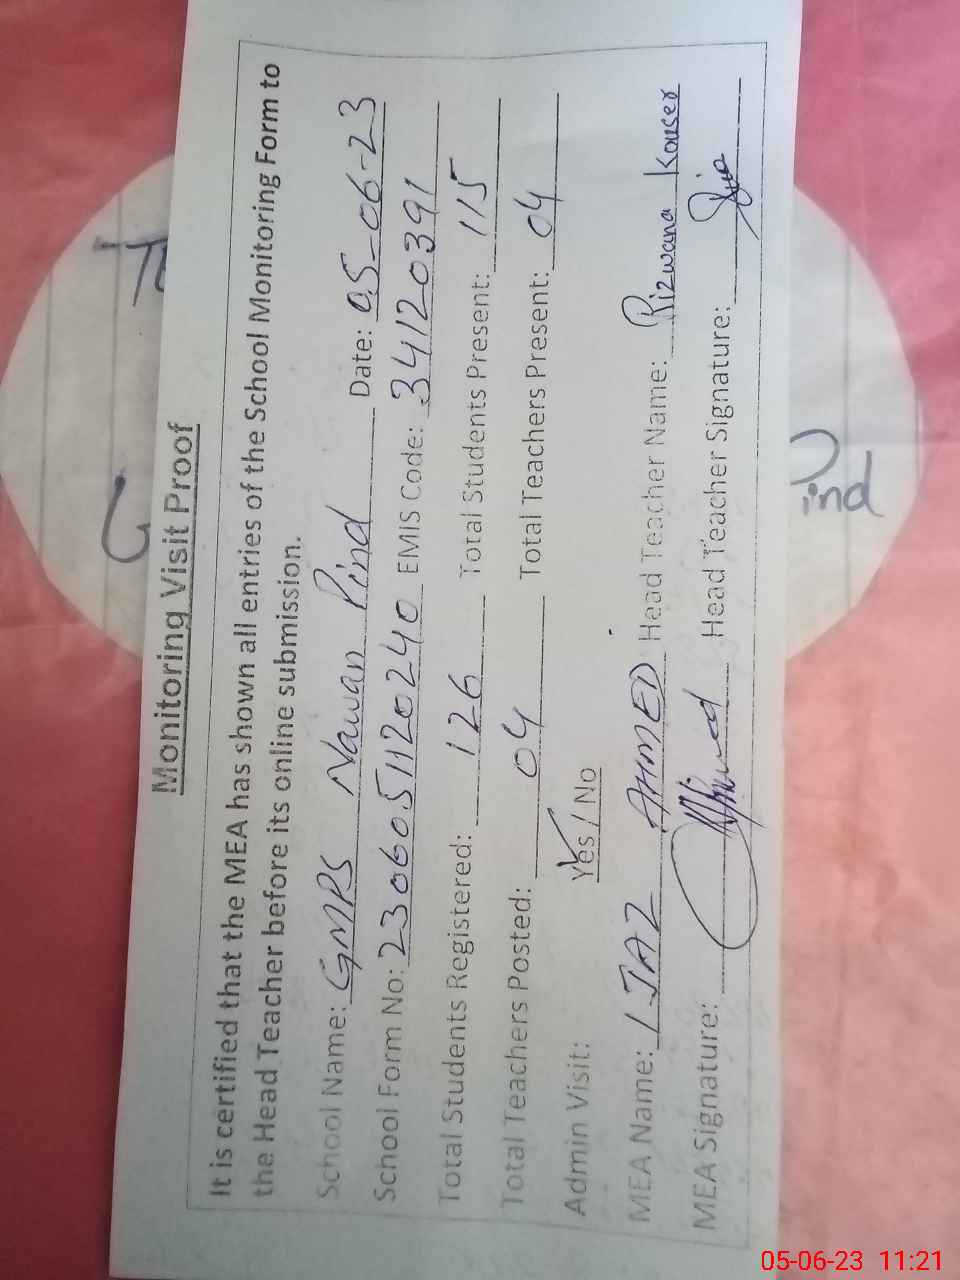 Monitoring Visit Proof
It is certified that the MEA has shown all entries of the School Monitoring Form to
the Head Teacher before its online submission.
School Name: GMPS Nawan Pind Date: 05-06-23
School Form No: 23060511120240 EMIS Code: 34120391
Total Students Registered: 126 Total Students Present: 115
Total Teachers Posted: 04 Total Teachers Present: 04
Admin Visit: Yes / No
MEA Name: IJAZ AHMED Head Teacher Name: Rizwana Kouser
MEA Signature: Head Teacher Signature:
ind
05-06-23 11:21